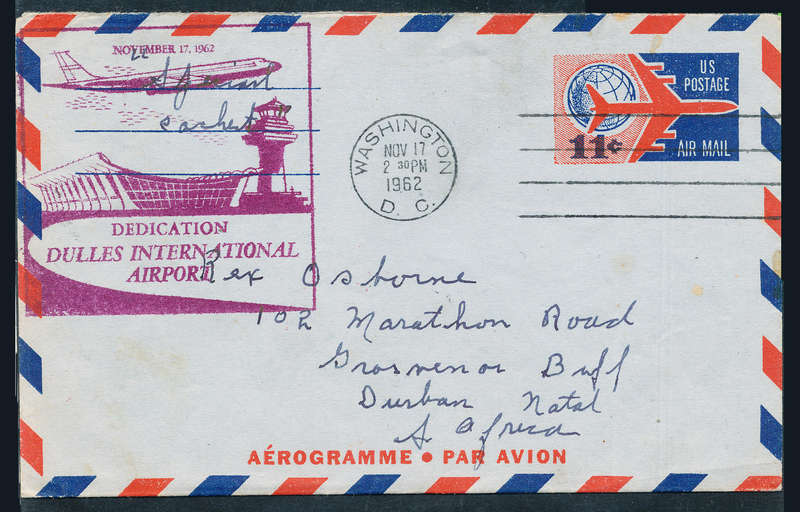 NOVEMBER 17, 1962
cachet
DEDICATION
DULLES INTERNATIONAL
AIRPORT
WASHINGTON
NOV 17
2 30 PM
1962
D. C.
US
POSTAGE
11¢
AIR MAIL
Rex Osborne
102 Marathon Road
Grosvenor Buff
Durban Natal
S Africa
AÉROGRAMME • PAR AVION